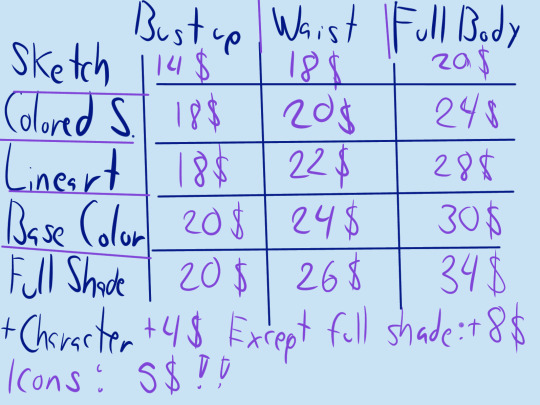 Bust up Waist Full Body
Sketch 14$ 18$ 20$
Colored S. 18$ 20$ 24$
Lineart 18$ 22$ 28$
Base Color 20$ 24$ 30$
Full Shade 20$ 26$ 34$
+Character +4$ Except full shade:+8$
Icons: 5$!!